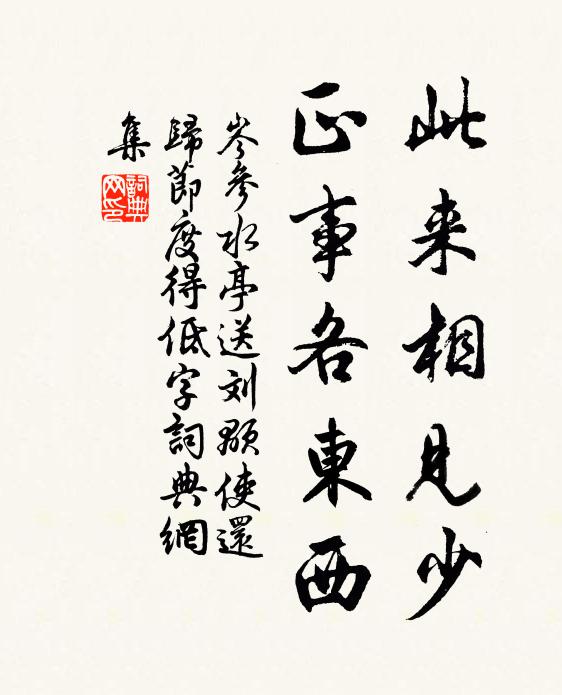 此来相見少
正事各東西
岑参水亭送刘顒使還
歸節度得低字詞典網
集
詞典网印